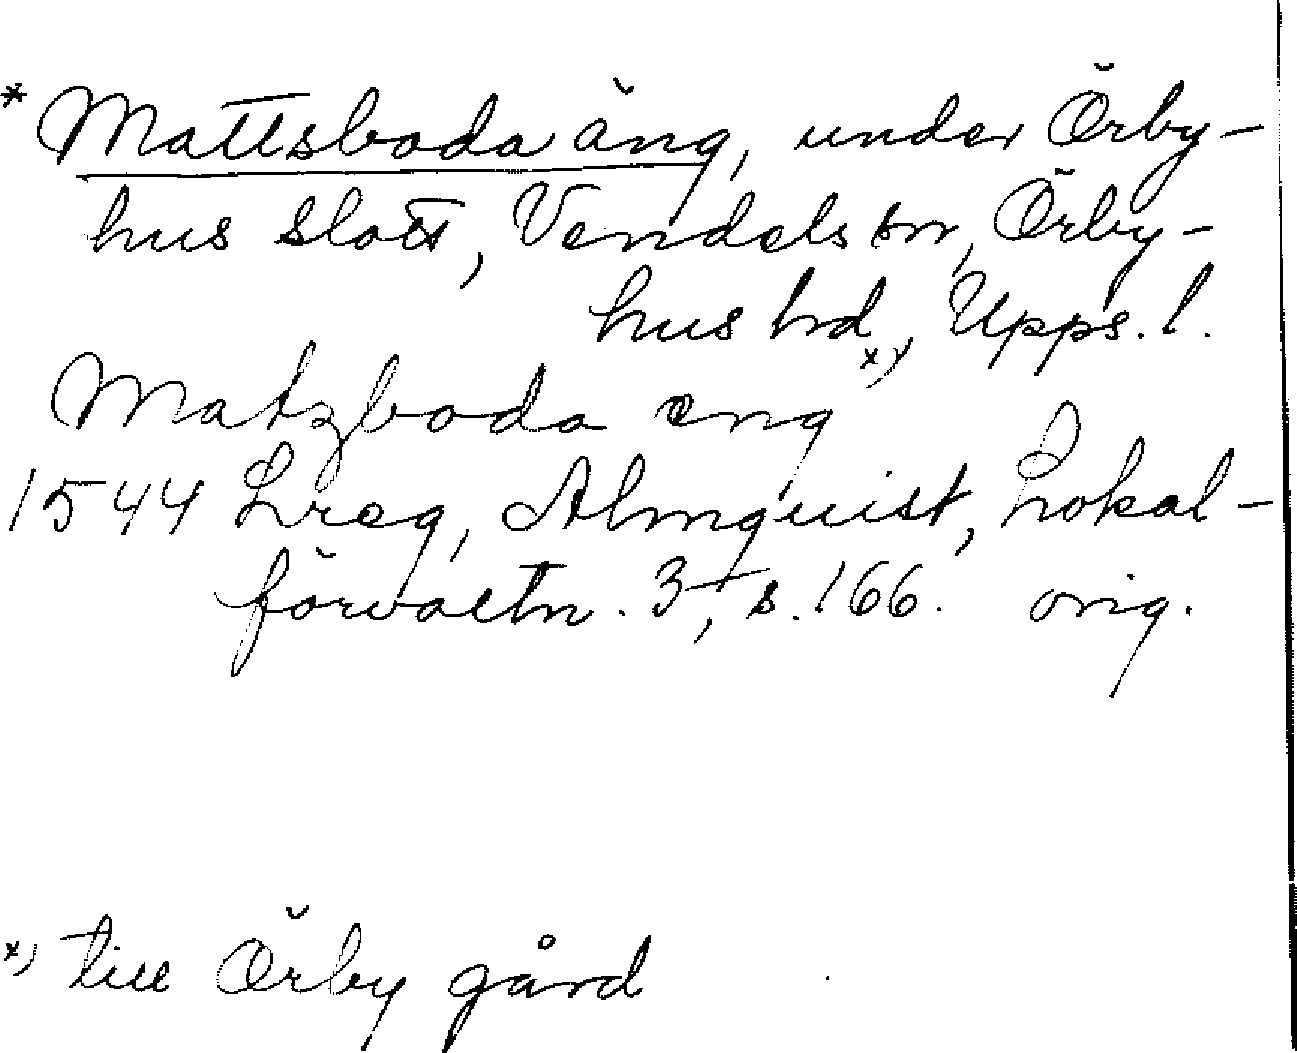 * Mattsboda äng, under Örby-
hus slott, Vendels sn, Örby-
hus hd, Upps. l.
Matzboda eng x)
1544 Lreg, Almquist, Lokal-
förvaltn. 3, s. 166. orig.
x) till Örby gård